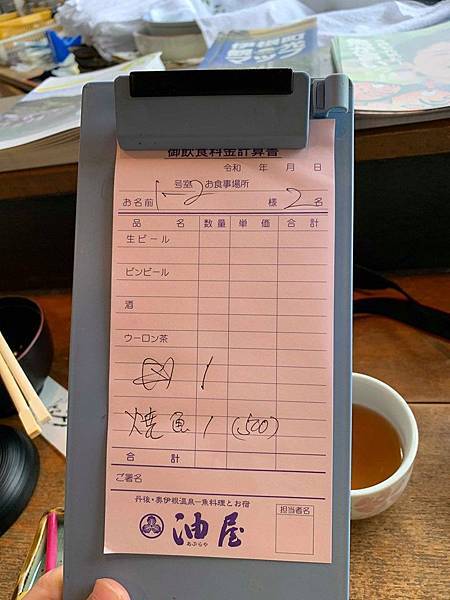 御飲食料金計算書
令和 年 月 日
号室 お食事場所
お名前 1-2 様 2名
品 名 数量 単価 合計
生ビール
ビンビール
酒
ウーロン茶
1
焼魚 1 (500)
合 計
ご署名
丹後・奥伊根温泉－魚料理とお宿
担当者名
油屋
あぶらや